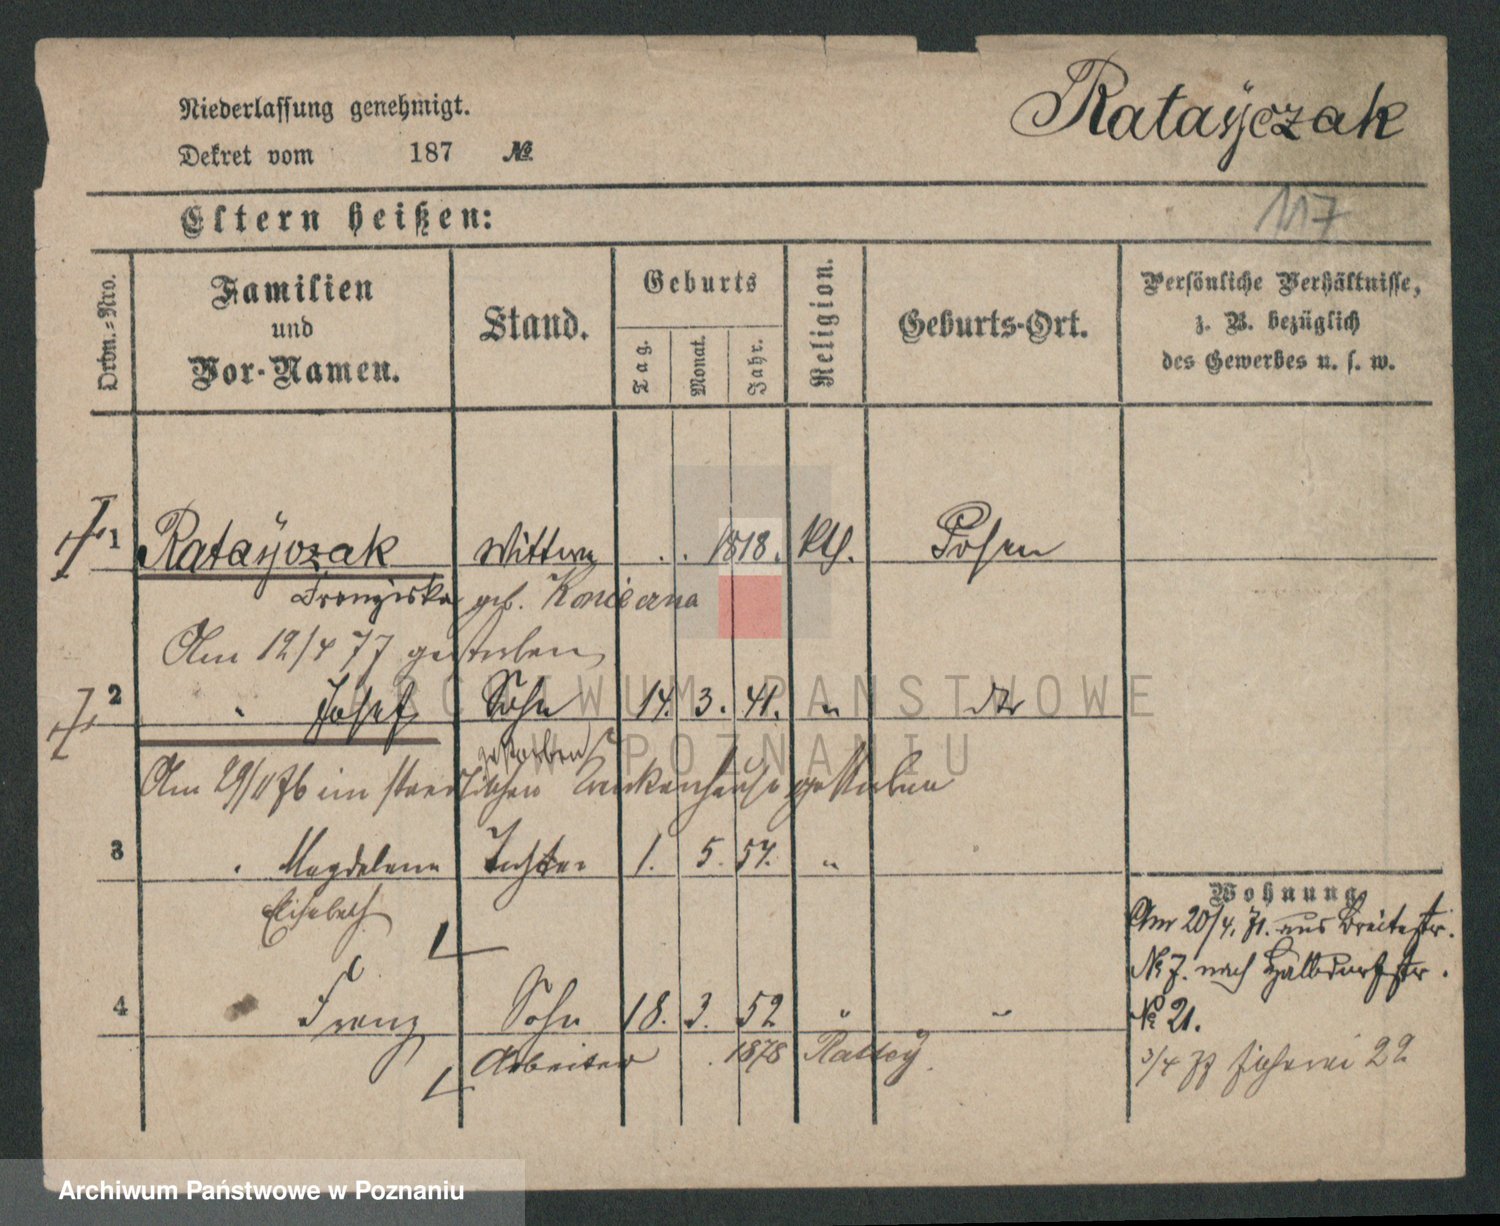 Niederlassung genehmigt.
Ratayczak
Dekret vom 187 №
117
Eltern heißen:
Ordn.-Nro.
Familien
und
Vor-Namen.
Stand.
Geburts
Tag.
Monat.
Jahr.
Religion.
Geburts-Ort.
Persönliche Verhältnisse,
z. B. bezüglich
des Gewerbes u. s. w.
1 Ratayczak Wittwe . . 1818. kth. Posen
Franziska geb.
Am 12/4 77 gestorben
2 " Josef Sohn 14. 3. 41. " dto
gestorben
Am 29/11 76 im städtischen Krankenhause gestorben
3 " Magdalena Tochter 1. 5. 57. "
Elisabeth
Wohnung
Am 20/4. 71. aus Breitestr.
№ 7. nach Halbdorfstr.
4 Franz Sohn 18. 3. 52 " "
№ 21.
Arbeiter 1878 Rattay.
3/4 77 22
ARCHIWUM PAŃSTWOWE
W POZNANIU
Archiwum Państwowe w Poznaniu